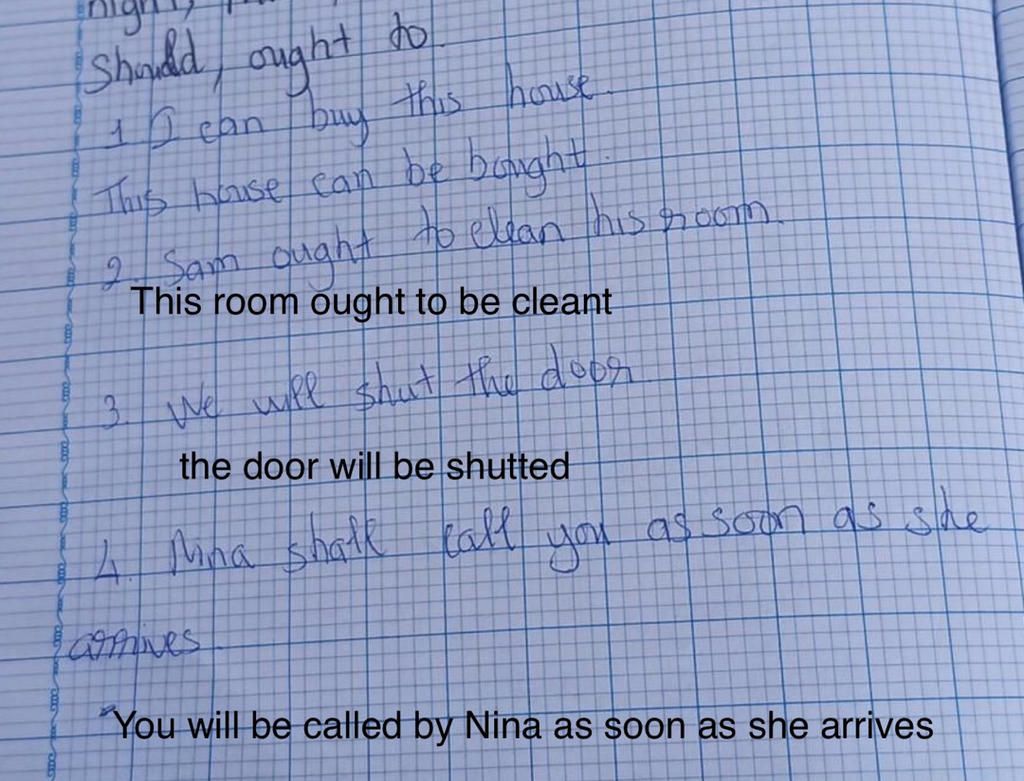 night,
Should, ought to.
1 I can buy this house.
This house can be bought.
2. Sam ought to clean his room.
This room ought to be cleant
3. We will shut the door
the door will be shutted
4. Nina shall call you as soon as she
arrives.
You will be called by Nina as soon as she arrives